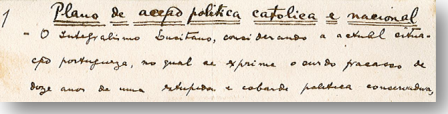 1 Plano de acção politica catolica e nacional
- O Integralismo Lusitano, considerando a actual situa-
ção portugueza, na qual se exprime o crudo fracasso de
doze anos de uma estupida e cobarde politica conservadora,